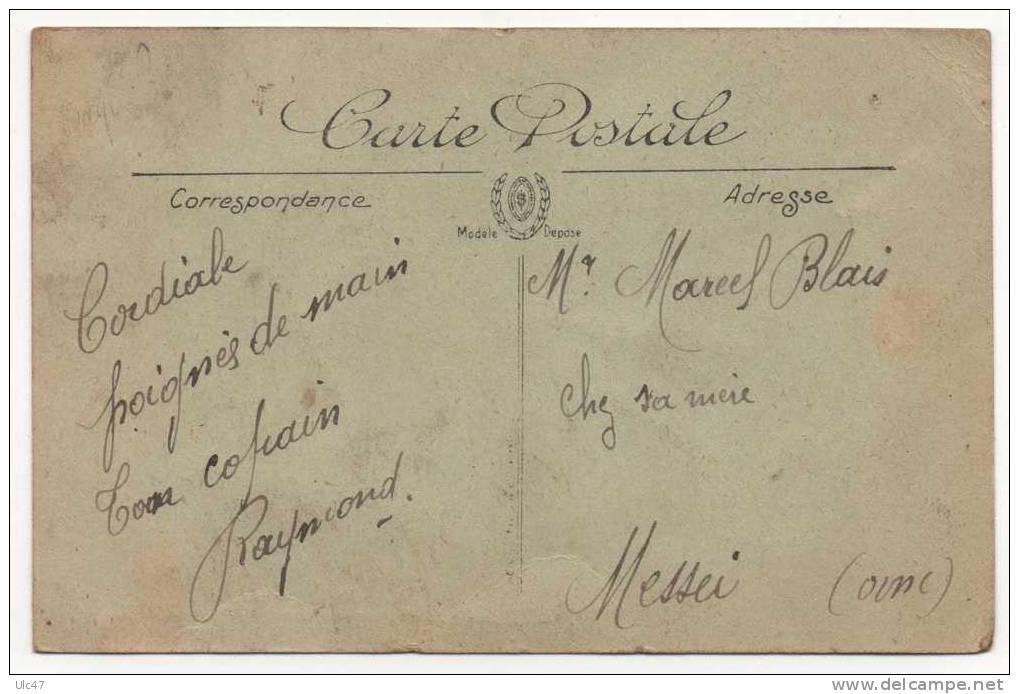 Carte Postale
Correspondance
Adresse
Modèle Déposé
Cordiale
poignés de main
Ton copain
Raymond.
Mr. Marcel Blais
chez sa mère
Messei (orne)
Ulc47
www.delcampe.net